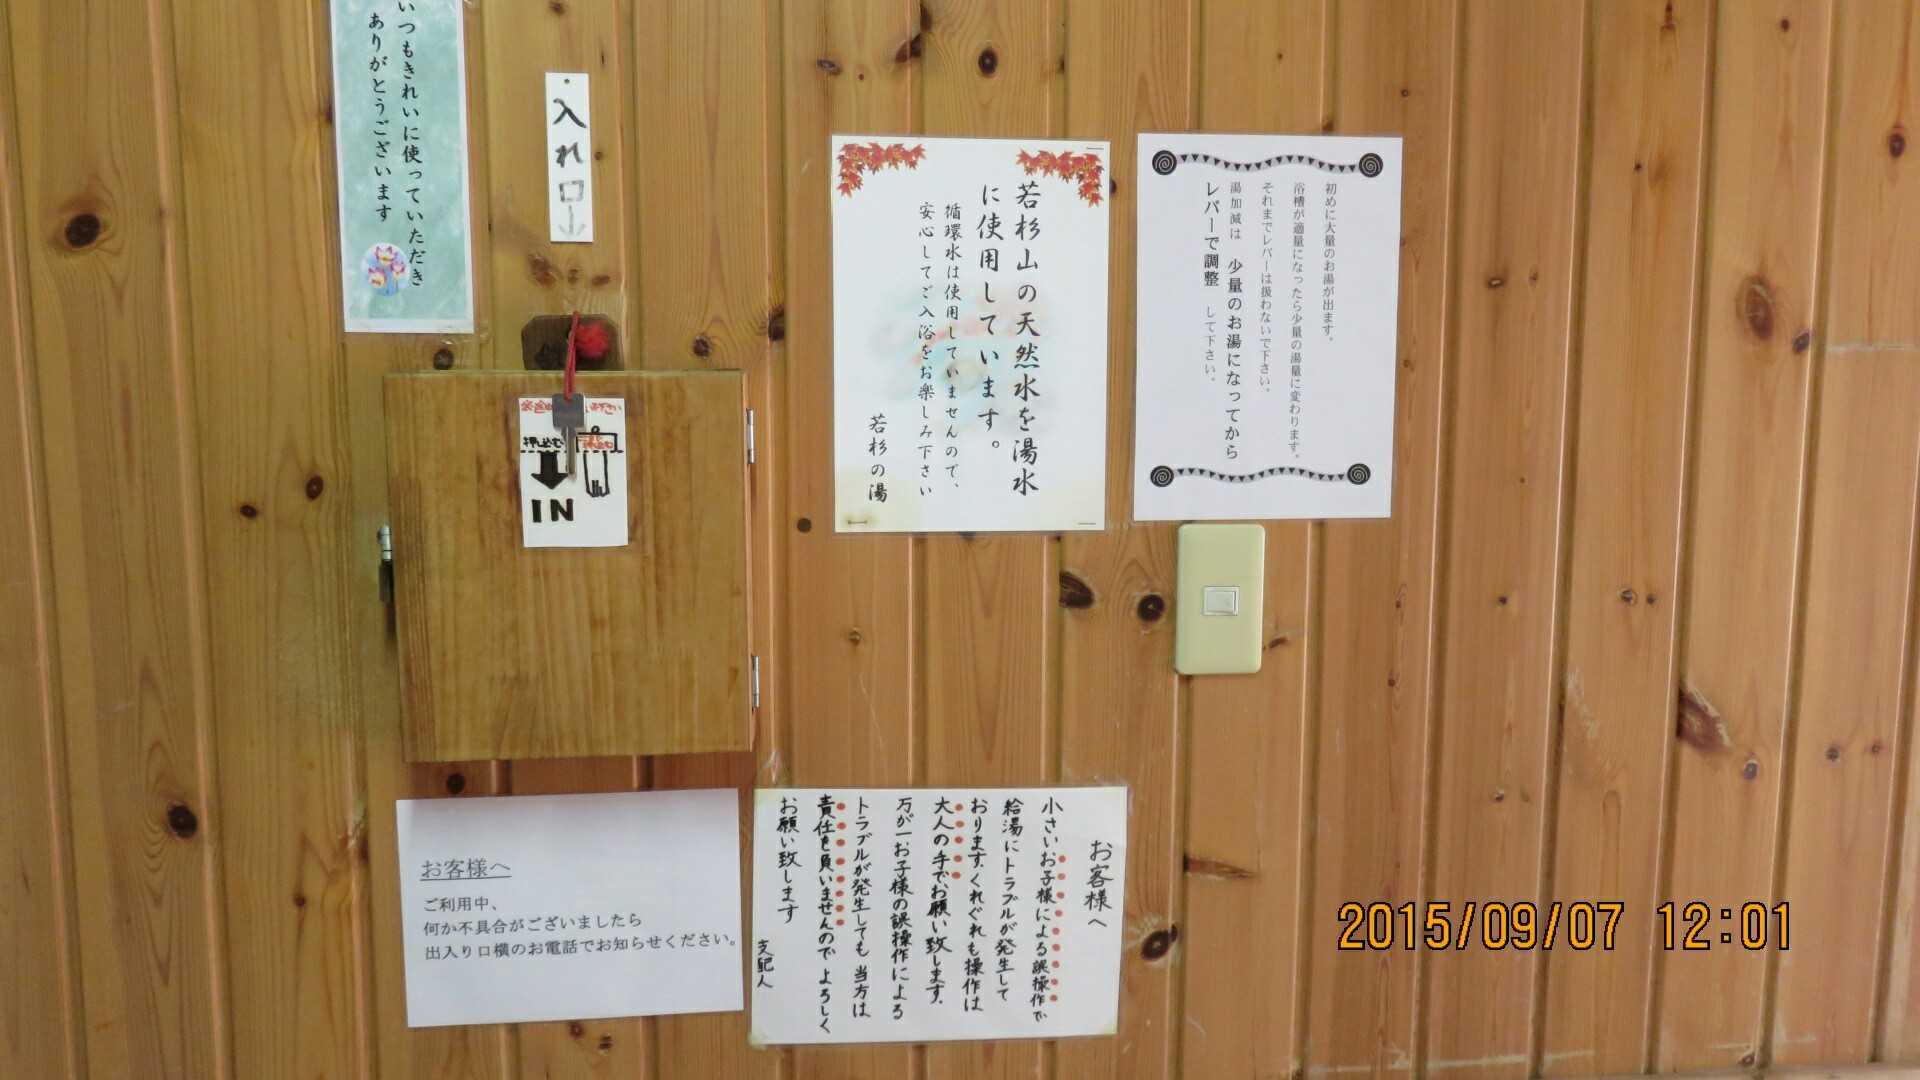 いつもきれいに使っていただき
ありがとうございます
入れ口
押し込む
IN
若杉山の天然水を湯水
に使用しています。
循環水は使用していませんので、
安心してご入浴をお楽しみ下さい
若杉の湯
初めに大量のお湯が出ます。
浴槽が適量になったら少量の湯量に変わります。
それまでレバーは扱わないで下さい。
湯加減は 少量のお湯になってから
レバーで調整 して下さい。
お客様へ
ご利用中、
何か不具合がございましたら
出入り口横のお電話でお知らせください。
お客様へ
小さいお子様による誤操作で
給湯にトラブルが発生して
おります。くれぐれも操作は
大人の手でお願い致します。
万が一お子様の誤操作による
トラブルが発生しても 当方は
責任を負いませんので よろしく
お願い致します
支配人
2015/09/07 12:01